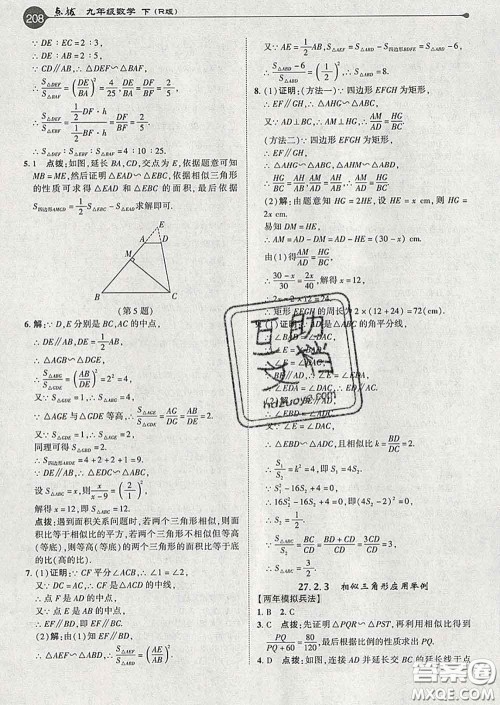 208 点拨 九年级数学 下(R版)
∵ DE∶EC=2∶3,
∴ DE∶AB=2∶5.
∵ CD∥AB,∴ △DEF∽△BAF.
∴ S△DEF/S△BAF=(DE/BA)²=4/25,DE/BA=DF/BF=2/5.
∴ S△DEF/S△BEF=(1/2 DF·h)/(1/2 BF·h)=DF/BF=2/5.
5. 1 点拨:如图,延长 BA,CD,交点为 E,依据题意可知
MB=ME,然后证明△EAD∽△EBC,依据相似三角形
的性质可求得△EAD 和△EBC 的面积,最后依据
S四边形AMCD=1/2 S△EBC-S△EAD求解即可.
E
A D
M
B C
(第 5 题)
6. 解:∵ D,E 分别是 BC,AC 的中点,
∴ DE∥AB,DE=1/2 AB,
∴ △AGB∽△DGE,
∴ S△AGB/S△DGE=(AB/DE)²=2²=4,
又∵ △AGE 与△GDE 等高,∴ S△AGE/S△GDE=AG/DG=AB/DE=2.
同理可得
∴ S四边形ABDE=4+2+2+1=9,
又∵ △CDE∽△CBA,
设 S△ABC=x,则 x/(x-9)=(2/1)²,
解得 x=12,即 S△ABC=12.
点拨:遇到面积关系问题时,若两个三角形相似,则面
积比等于相似比的平方,若两个三角形不相似,但同高
(等高)或同底(等底),则两个三角形的面积比等于底
的比(高的比).
7. (1)证明:∵ CF 平分∠ACB,DC=AC,
∴ CF 是△DCA 的中线,
∴ 点 F 是 AD 的中点,
又∵ 点 E 是 AB 的中点,
∴ EF∥BD,即 EF∥BC.
(2)解:由(1)知 EF∥BD,
∴ △AEF∽△ABD,∴ S△AEF/S△ABD=(AE/AB)².
又∵ AE=1/2 AB,S△AEF=S△ABD-S四边形BDFE=S△ABD-6,
∴ (S△ABD-6)/S△ABD=(1/2)²,∴ S△ABD=8.
8. (1)证明:(方法一)∵ 四边形 EFGH 为矩形,
∴ EF∥GH,∴ △AHG∽△ABC,
又∵ AD⊥BC,∴ AM⊥HG,∴ AM/AD=HG/BC.
(方法二)∵ 四边形 EFGH 为矩形,
∴ HG/BC=AH/AB=AM/AD,∴ AM/AD=HG/BC.
(2)解:由题意知 HG=2HE,设 HE=x cm,则 HG=
2x cm.
易知 DM=HE,
∴ AM=AD-DM=AD-HE=(30-x)cm.
由(1)得 AM/AD=HG/BC,
∴ (30-x)/30=2x/40,解得 x=12,
∴ 2x=2×12=24.
∴ 矩形 EFGH 的周长为 2×(12+24)=72(cm).
9. (1)证明:∵ AD 是△ABC 的角平分线,
∵ BE∥AD,
又∵ ∠EDB=∠DAC,
∴ △EBD∽△DAC,且相似比 k=BD/DC=2.
∴ S₁/S₂=k²=4,即 S₁=4S₂.
∵ S₁²-16S₂+4=0,
∴ 16S₂²-16S₂+4=0,即(4S₂-2)²=0,
∴ S₂=1/2.
∵ S△ABC/S₂=BC/CD=(BD+CD)/CD=3CD/CD=3,
∴ S△ABC=3/2.
27.2.3 相似三角形应用举例
【两年模拟兵法】
1. B 2. C
3. C 点拨:先证明△PQR∽△PST,再利用相似比得到
PQ/(PQ+60)=80/120,最后根据比例的性质求出 PQ.
4. D 点拨:如图,连接 AD 并延长交 BC 的延长线于点
互助文档
huzuoye.com
答案圈
MXQE.COM